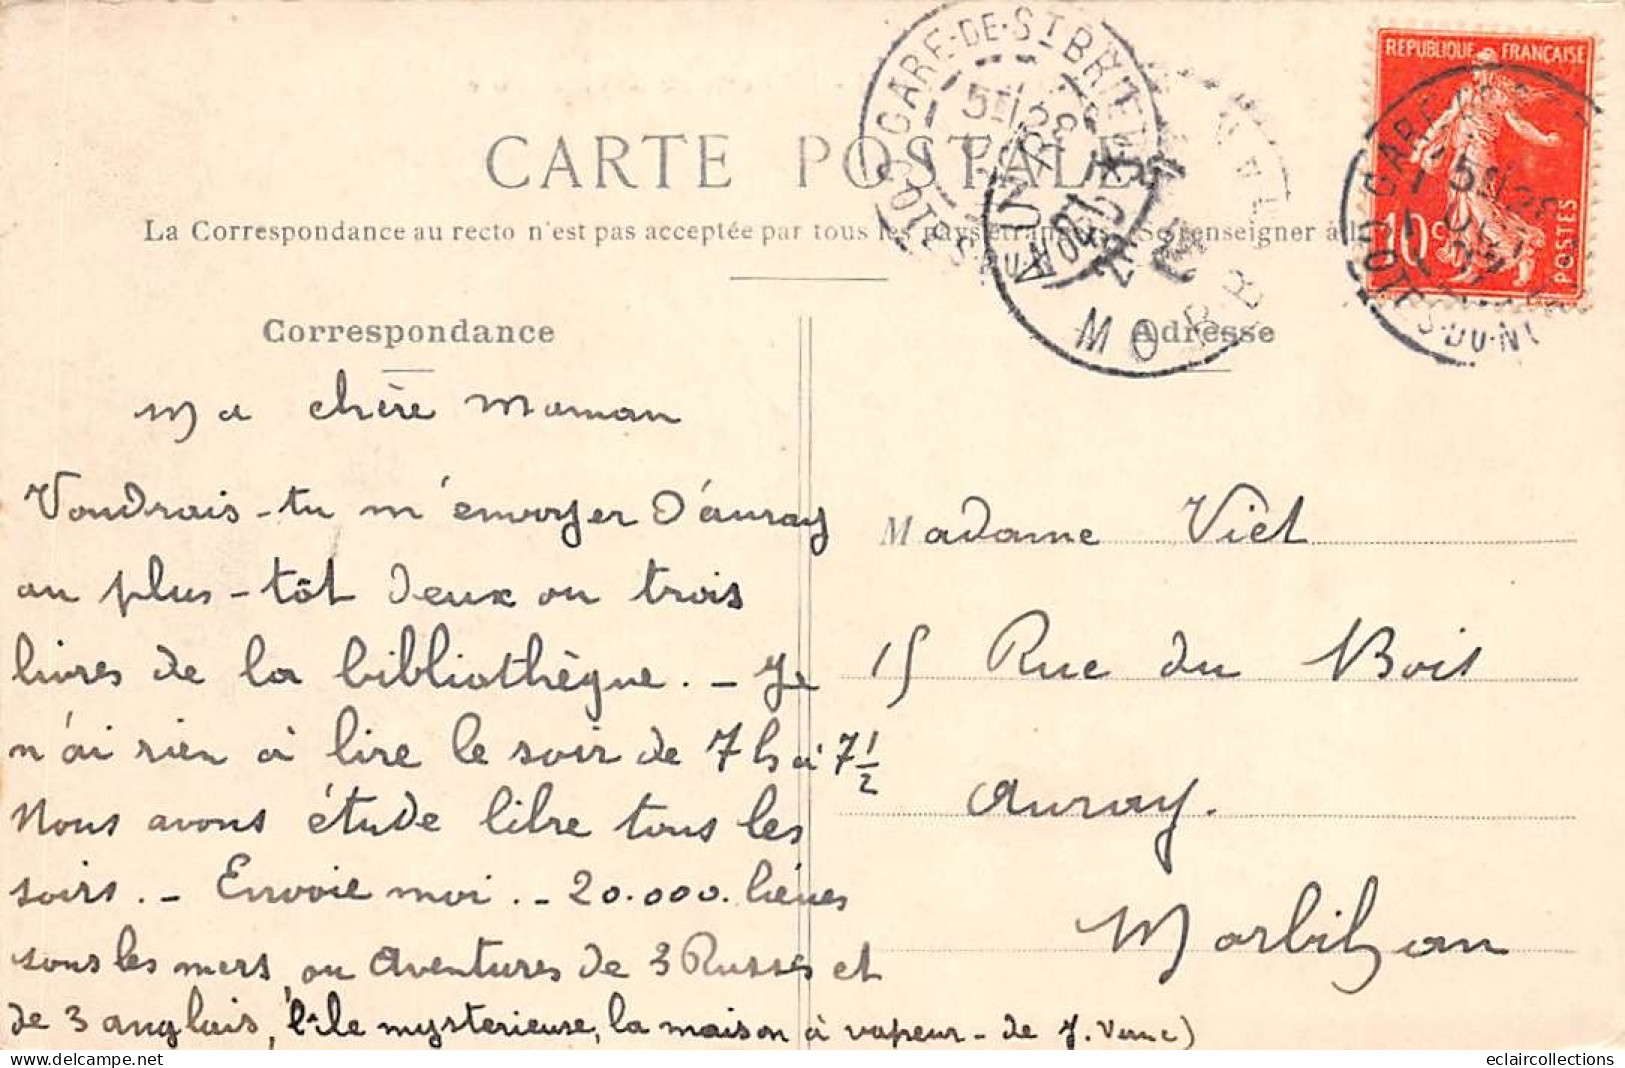 CARTE POSTALE
La Correspondance au recto n'est pas acceptée par tous les pays étrangers. Se renseigner à la
REPUBLIQUE FRANÇAISE
10c
POSTES
GARE-DE-ST BRIEUC
COTES-DU-NORD
AURAY
MORB
GARE
COTES-DU-N
Correspondance
Adresse
Ma chère Maman
Voudrais-tu m'envoyer d'Auray
au plus-tôt deux ou trois
livres de la bibliothèque. - Je
n'ai rien à lire le soir de 7 h à 7 1/2
Nous avons étude libre tous les
soirs. - Envoie moi. - 20.000. lieues
sous les mers, ou Aventures de 3 Russes et
de 3 anglais, l'île mysterieuse, la maison à vapeur - de J. Verne)
Madame Viet
15 Rue du Bois
Auray.
Morbihan
eclaircollections